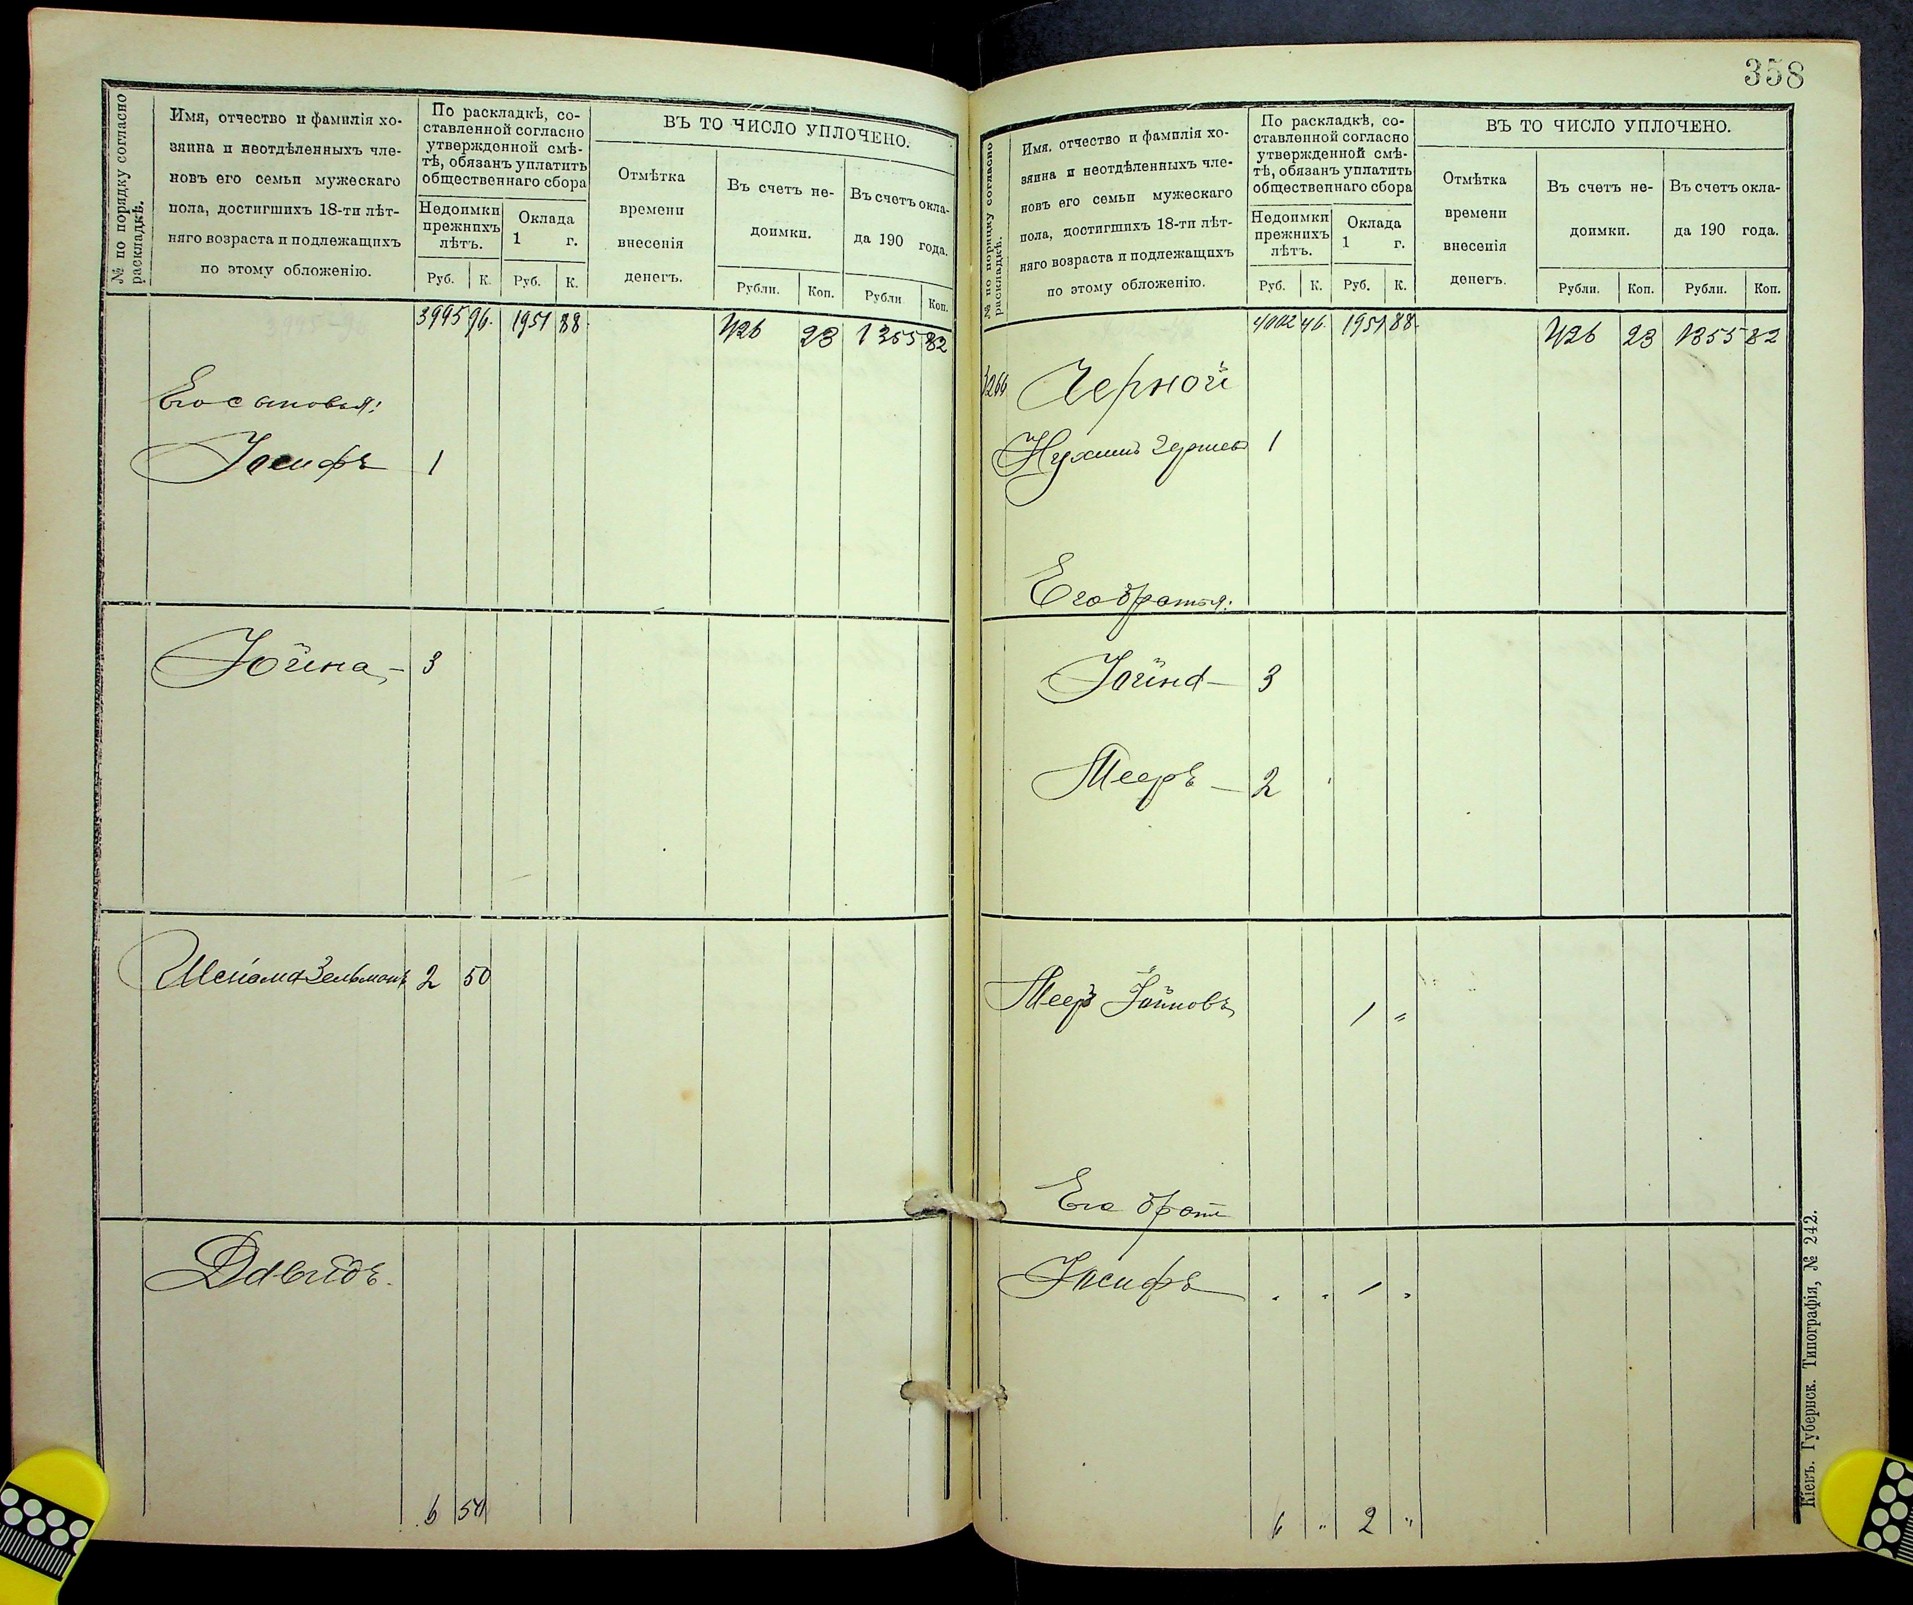 № по порядку согласно
раскладкѣ.
Имя, отчество и фамилія хо-
зяина и неотдѣленныхъ чле-
новъ его семьи мужескаго
пола, достигшихъ 18-ти лѣт-
няго возраста и подлежащихъ
по этому обложенію.
По раскладкѣ, со-
ставленной согласно
утвержденной смѣ-
тѣ, обязанъ уплатить
общественнаго сбора
Недоимки
прежнихъ
лѣтъ.
Оклада
1 г.
Руб. К. Руб. К.
ВЪ ТО ЧИСЛО УПЛОЧЕНО.
Отмѣтка
времени
внесенія
денегъ.
Въ счетъ не-
доимки.
Въ счетъ окла-
да 190 года.
Рубли. Коп. Рубли Коп.
3995 96 1951 88 426 23 1355 82
Его сыновья:
Іосифъ 1
Іойна, — 3
Зельманъ 2 50
Давидъ.
6 50
358
№ по порядку согласно
раскладкѣ.
Имя, отчество и фамилія хо-
зяина и неотдѣленныхъ чле-
новъ его семьи мужескаго
пола, достигшихъ 18-ти лѣт-
няго возраста и подлежащихъ
по этому обложенію.
По раскладкѣ, со-
ставленной согласно
утвержденной смѣ-
тѣ, обязанъ уплатить
общественнаго сбора
Недоимки
прежнихъ
лѣтъ.
Оклада
1 г.
Руб. К. Руб. К.
ВЪ ТО ЧИСЛО УПЛОЧЕНО.
Отмѣтка
времени
внесенія
денегъ.
Въ счетъ не-
доимки.
Въ счетъ окла-
да 190 года.
Рубли. Коп. Рубли. Коп.
4002 46 1951 88 426 23 1355 82
3266 Черной
Нухимъ Гершевъ 1
Его братья:
Іойна — 3
Мееръ — 2
Мееръ Іойновъ 1 "
Его братъ
Іосифъ " " 1 "
6 " 2 "
Кіевъ. Губернск. Типографія, № 242.